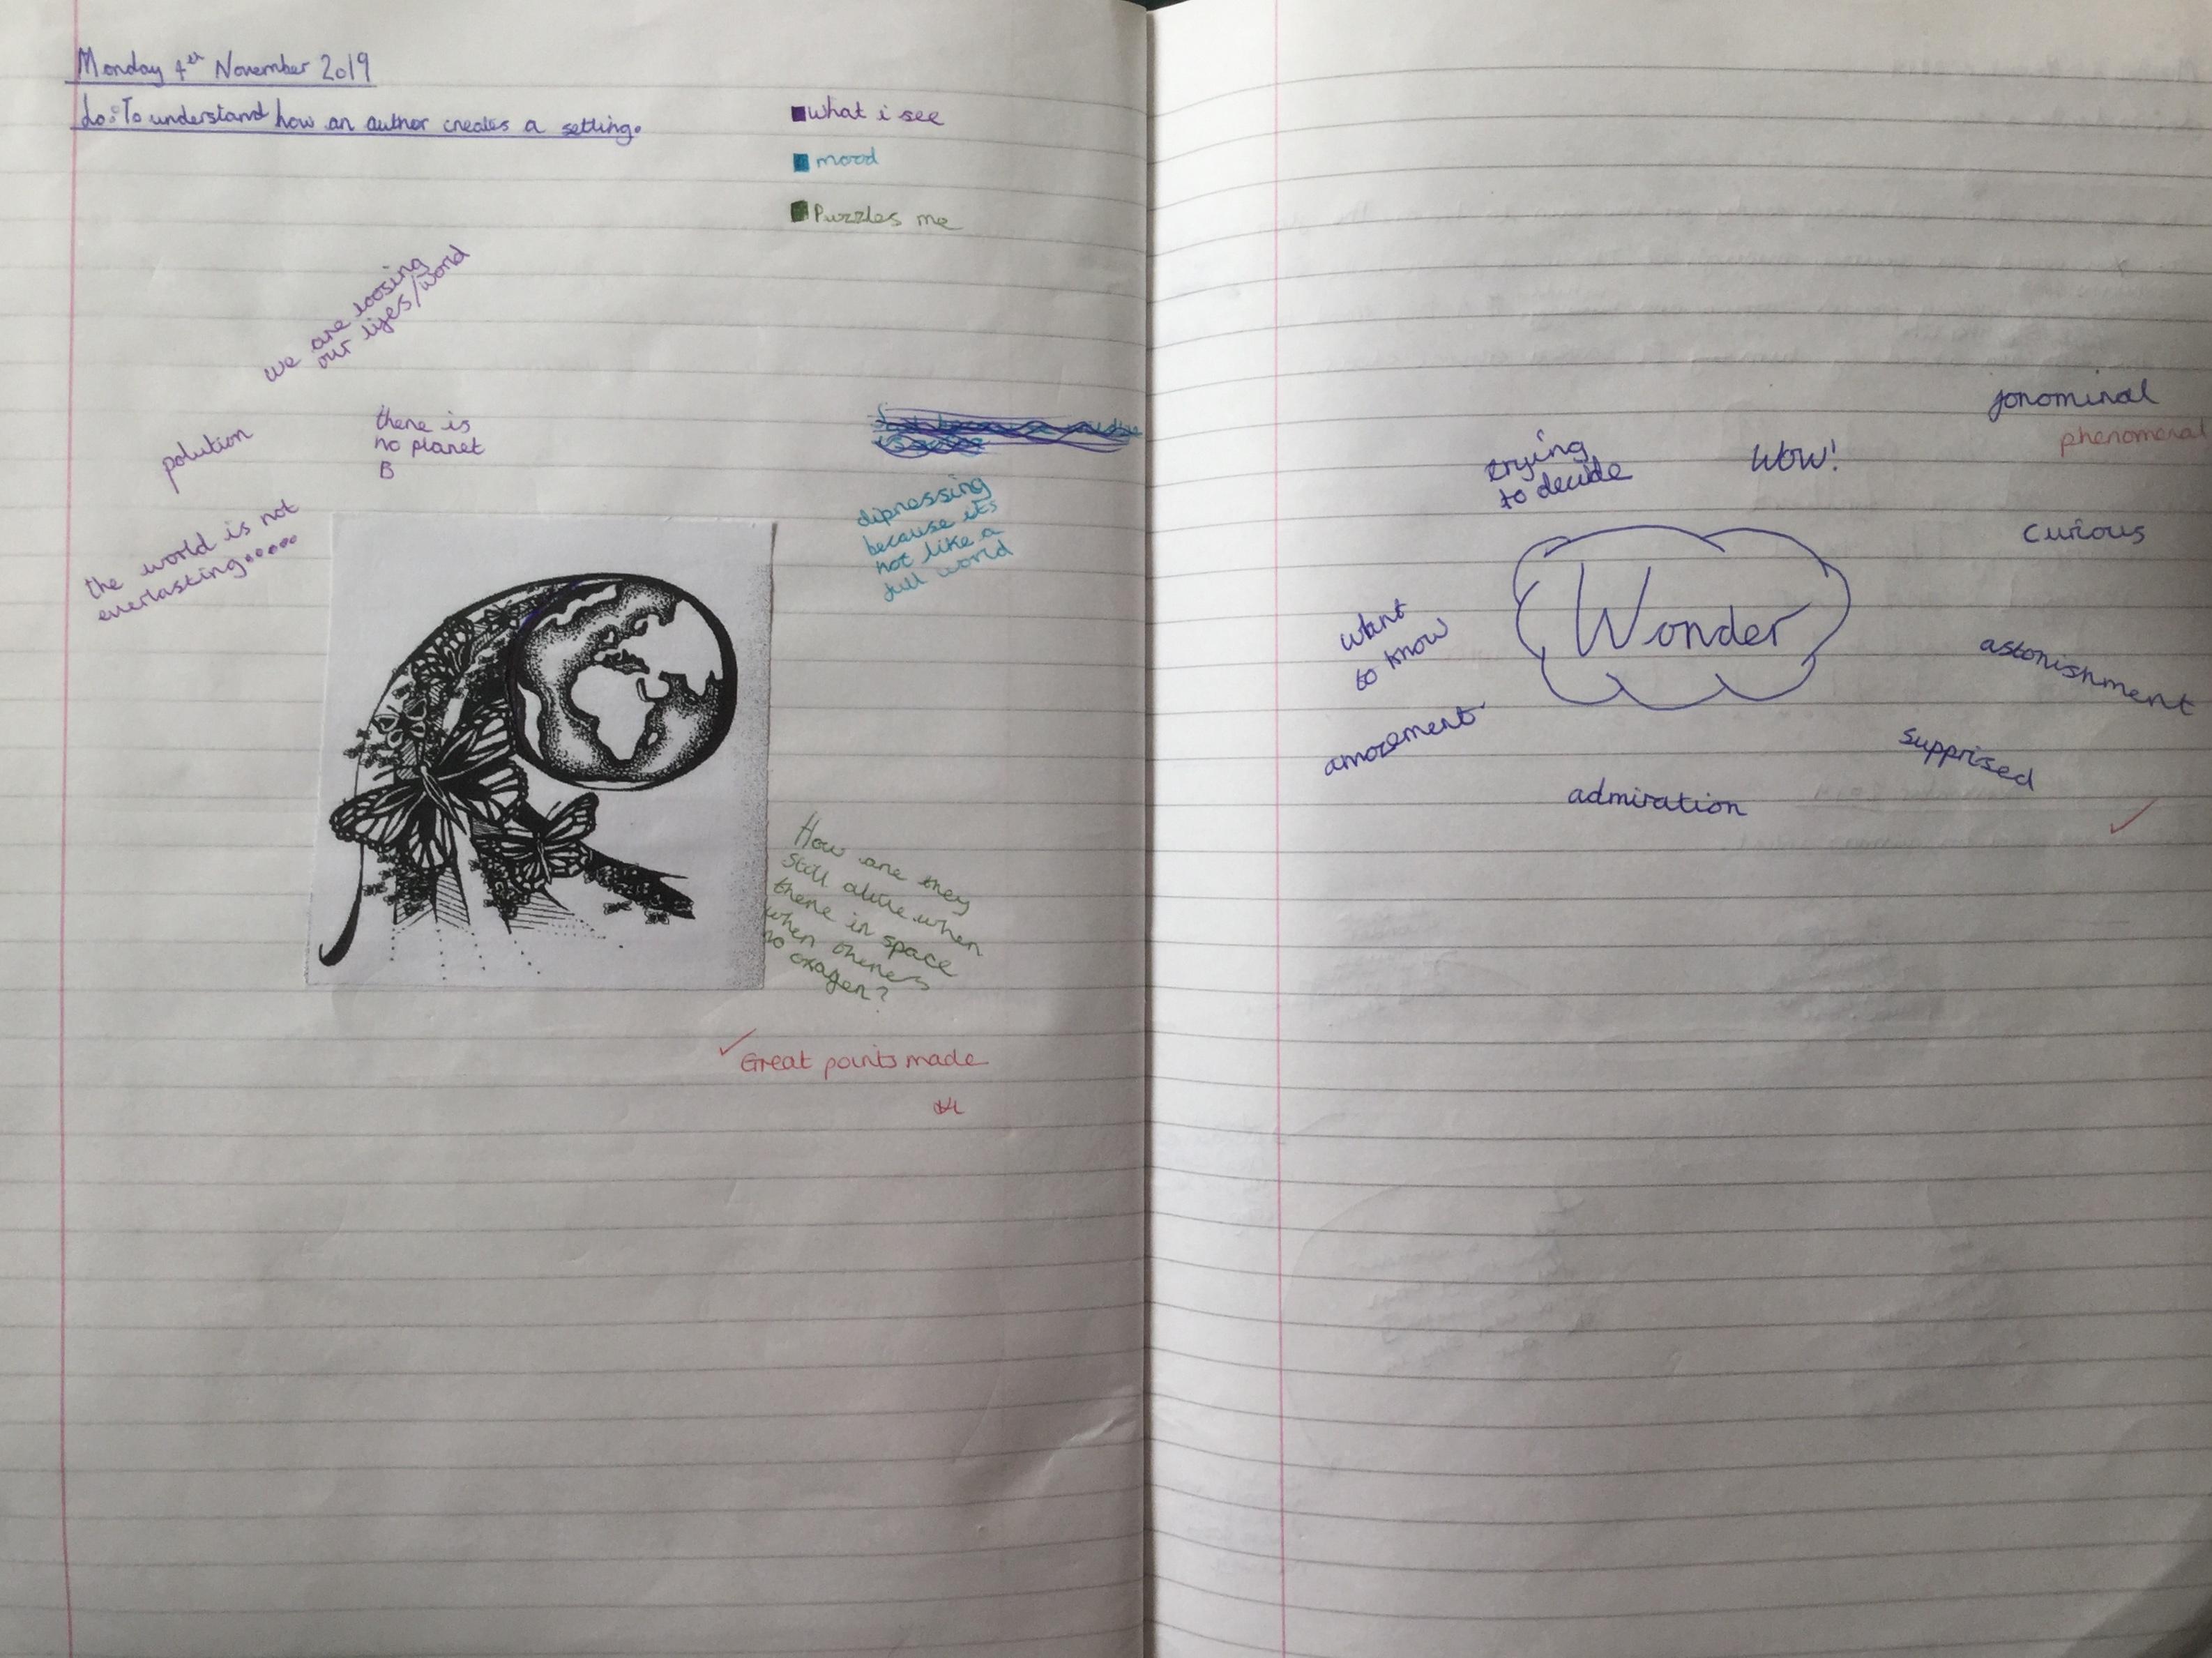 Monday 4th November 2019
Lo: To understand how an author creates a setting.
what i see
mood
Puzzles me
we are loosing
our lifes/world
polution
there is
no planet
B
the world is not
everlasting.....
dipressing
because it's
not like a
full world
How are they
still alive when
there in space
when theres
no oxagen?
Great points made
jonominal
phenomenal
trying
to decide
WOW!
Curious
Wonder
want
to know
astonishment
amazement
supprised
admiration